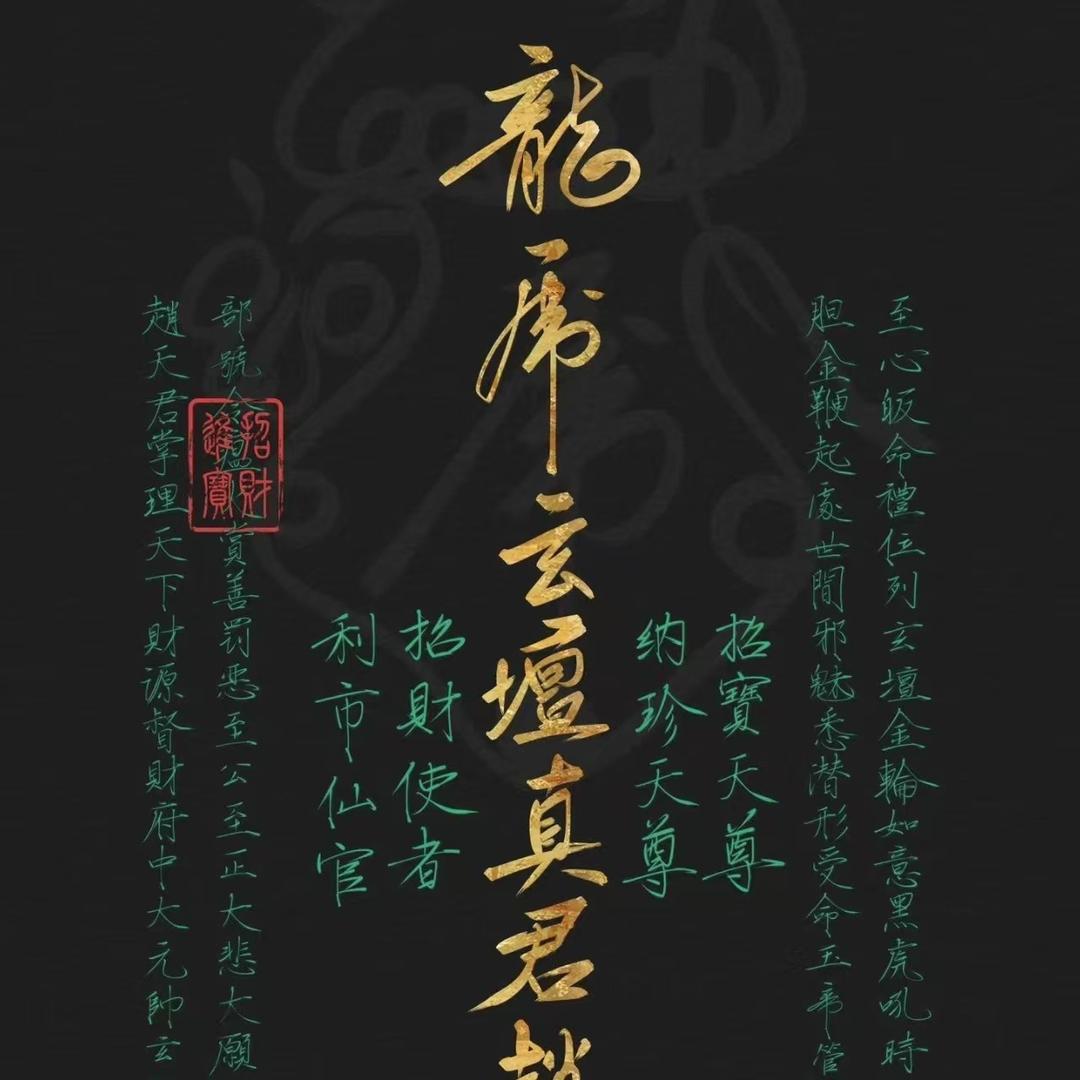 至心皈命禮位列玄壇金輪如意黑虎吼時
胆金鞭起處世間邪魅悉潛形受命玉帝管
招寶天尊
纳珍天尊
龍虎玄壇真君趙
招財使者
利市仙官
部號令賞善罰惡至公至正大悲大願
趙天君掌理天下財源督財府中大元帥玄
招財進寶